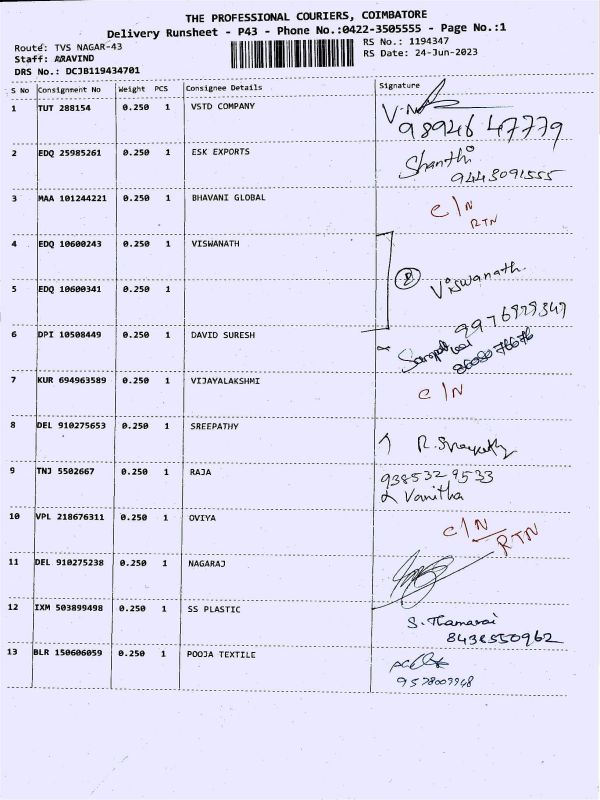 THE PROFESSIONAL COURIERS, COIMBATORE
Delivery Runsheet - P43 - Phone No.:0422-3505555 - Page No.:1
Route: TVS NAGAR-43
RS No.: 1194347
Staff: ARAVIND
RS Date: 24-Jun-2023
DRS No.: DCJB119434701
S No Consignment No Weight PCS Consignee Details Signature
1 TUT 288154 0.250 1 VSTD COMPANY
98946 47779
2 EDQ 25985261 0.250 1 ESK EXPORTS Shanthi
9443091555
3 MAA 101244221 0.250 1 BHAVANI GLOBAL C/N
RTN
4 EDQ 10600243 0.250 1 VISWANATH
5 EDQ 10600341 0.250 1 Viswanath
6 DPI 10508449 0.250 1 DAVID SURESH
7 KUR 694963589 0.250 1 VIJAYALAKSHMI C/N
8 DEL 910275653 0.250 1 SREEPATHY R. Sreepathy
9 TNJ 5502667 0.250 1 RAJA 938532 9533
Vanitha
10 VPL 218676311 0.250 1 OVIYA C/N
RTN
11 DEL 910275238 0.250 1 NAGARAJ
12 IXM 503899498 0.250 1 SS PLASTIC S. Thamarai
8438550962
13 BLR 150606059 0.250 1 POOJA TEXTILE